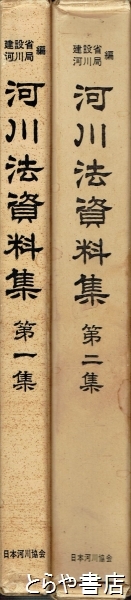 建設省
河川局
編
河川法資料集
第一集
日本河川協会
建設省
河川局
編
河川法資料集
第二集
日本河川協会
とらや書店